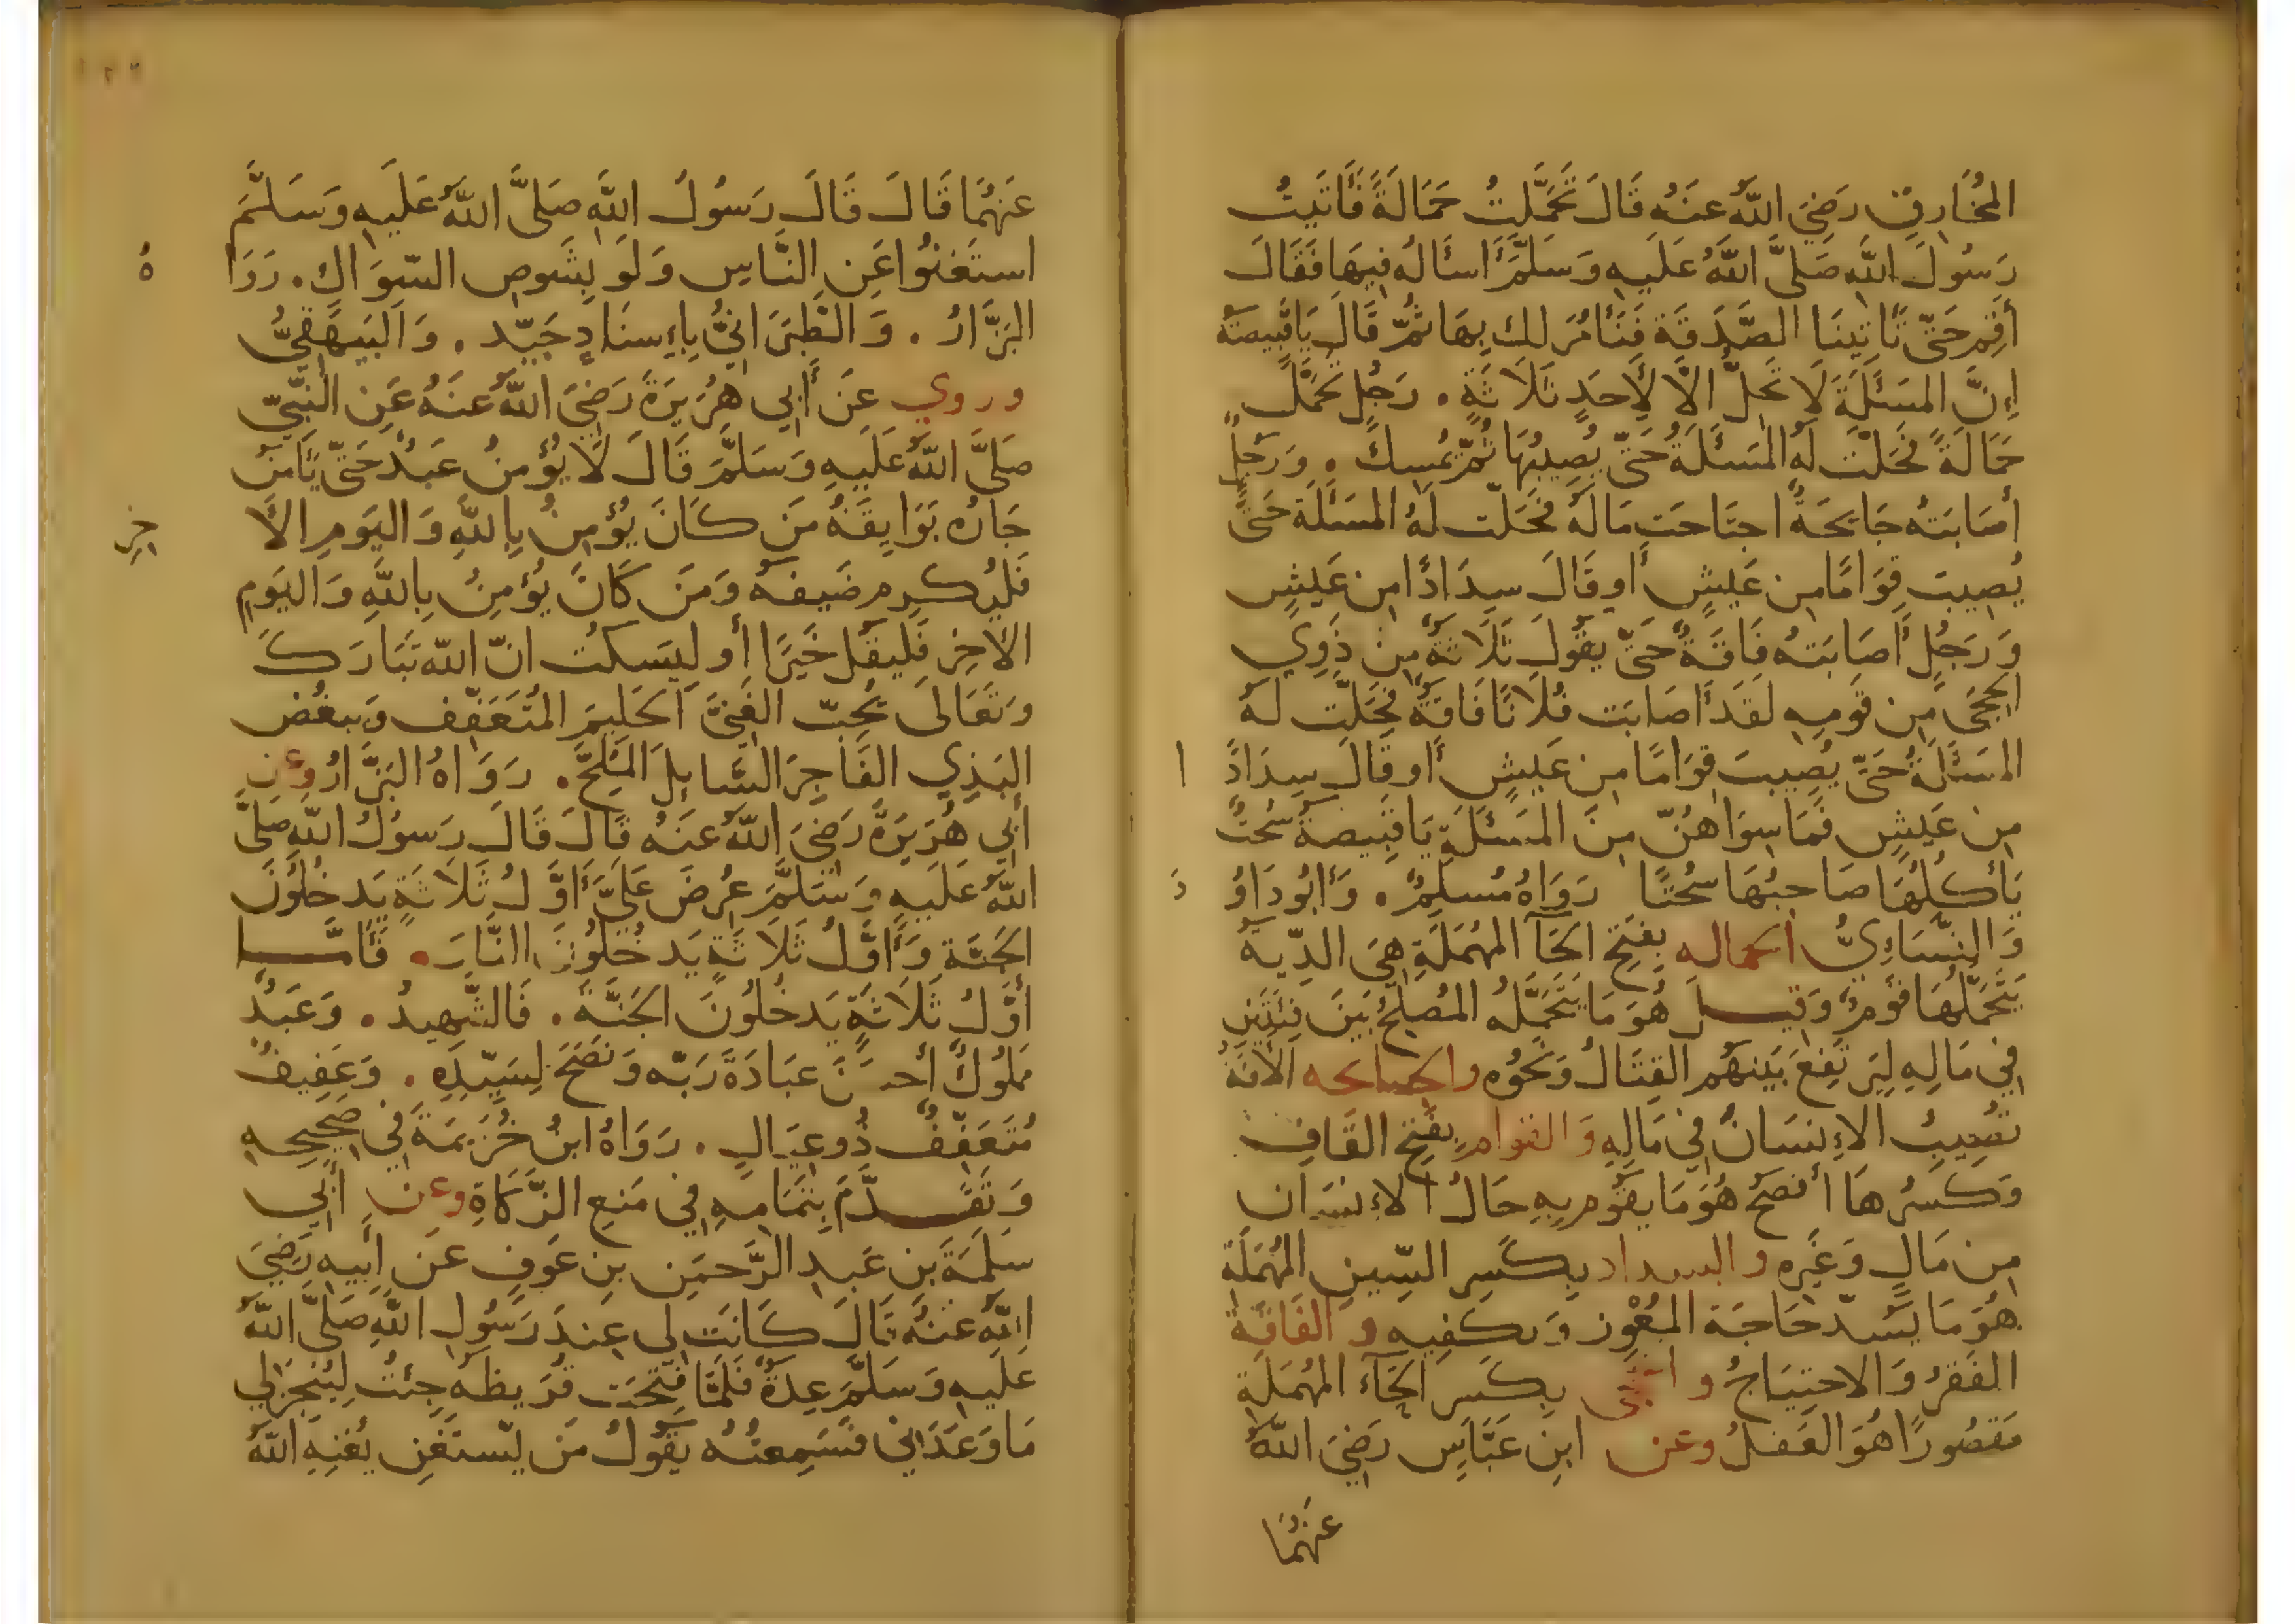 المُخَارِقِ رَضِيَ اللَّهُ عَنهُ قَالَ تَحَمَّلتُ حَمَالَةً فَأَتَيتُ
رَسُولَ اللَّهِ صَلَّى اللَّهُ عَلَيهِ وَسَلَّمَ أَسئَالُه فِيهَا فَقَالَ
أَقِم حَتّى تَاتِينَا الصَّدَقَة فَنَأمُرَ لك بِهَا ثُمّ قَالَ يَا قَبِيصَة
إِنَّ المَسئَلَةَ لَا تَحِلُّ إلاَّ لِأَحَدِ ثَلَاثَةٍ . رَجُلٍ تَحَمَّلَ
حَمَالَةً فَحَلَّتْ لَهُ المَسئَلَةُ حَتّى يُصِيبُهَا ثُمّ يُمسِكُ . وَرَجُلٍ
أصَابَتهُ جَايِحَةٌ اجتَاحَت مَالَهُ فَحَلّت لَهُ المَسئَلَة حَتَّى
يُصِيبَ قِوَامًا مِن عَيشٍ أَو قَالَ سِدَادًا مِن عَيشٍ
وَرَجُلٍ أَصَابَتهُ فَاقَةٌ حَتّى يقُولَ ثَلَاثَةٌ مِن ذَوِي
الحِجَى مِن قَومِهِ لَقَد أَصَابَت فُلَانًا فَاقَةٌ فَحَلّت لَهُ
المَسئَلَةُ حَتَّى يُصِيبَ قِوَامًا مِن عَيشٍ أَو قَالَ سِدَادً ا
مِن عَيشٍ فَمَا سِوَاهُنّ مِنَ المَسئَلَةِ يَا قَبِيصَةُ سُحتٌ
يَأكُلُهَا صَاحِبُهَا سُحتًا رَوَاهُ مُسلِمٌ . وَأَبُو دَاوُ دَ
وَالنِّسَاءِيُّ الحماله بِفَتحِ الحَآ المُهمَلَةِ هِيَ الدِّيَة
يَتَحَمَّلُهَا قَومٌ وَقِيلَ هُوَ مَا يَتَحَمَّلُه المُصلِحُ بَينَ فِئَتَينِ
فِي مَالِهِ لِيَرتَفِعَ بَينَهُم القِتَالُ وَنَحوُه والجايحه الآفَةُ
تُصِيبُ الإِنسَانَ فِي مَالِهِ وَالقوام بِفَتحِ القَافِ
وَكَسرُهَا أَفصَحُ هُوَ مَا يقُوم بِهِ حَالُ الإِنسَان
مِن مَالٍ وَغَيرِه والسداد بِكَسرِ السِّينِ المُهمَلَةِ
هُوَ مَا يَسُدّ حَاجَة المُعْوِز وَيكفِيه وَالفَاقَةُ
الفَقرُ وَالاحتِيَاجُ والحجَى بِكَسرِ الحَآءِ المُهمَلَةِ
مَقصُورًا هُوَ العَقلُ وعن ابنِ عَبَّاسٍ رَضِيَ اللَّهُ
عَنهُمَا
عَنهُمَا قَالَ قَالَ رَسُولُ اللَّهِ صَلَّى اللَّهُ عَلَيهِ وَسَلَّمَ
استَغنُوا عَنِ النَّاسِ وَلَو بِشَوصِ السِّوَاكِ . رَوَا هُ
البَزَّارُ . وَالطَبَرَانِيُّ بِإِسنَادٍ جَيِّد . وَالبَيهَقِيُّ
وروي عَن أَبِي هُرَيرَةَ رَضِيَ اللَّهُ عَنهُ عَنِ النَّبِيِّ
صَلَّى اللَّهُ عَلَيهِ وَسَلَّمَ قَالَ لَا يُؤمِنُ عَبدٌ حَتّى يَأمَنَ
جَارُه بَوَايِقَهُ مَن كَانَ يُؤمِنُ بِاللَّهِ وَاليَومِ الآ خِرِ
فَليُكرِم ضَيفَهُ وَمَن كَانَ يُؤمِنُ بِاللَّهِ وَاليَومِ
الآخِرِ فَليقُل خَيرًا أَو لِيَسكُت انّ اللّه تَبَارَكَ
وَتَعَالَى يُحِبّ الغَنِيَّ الحَلِيمَ المُتَعَفِّف وَيبغُضُ
البَذِي الفَاجِرَ السَّايِلَ المُلِحَّ . رَوَاهُ البَزَّارُ وعن
أَبِي هُرَيرَةَ رَضِيَ اللَّهُ عَنهُ قَالَ قَالَ رَسُولُ اللَّهِ صَلَّى
اللَّهُ عَلَيهِ وَسَلَّمَ عُرِضَ عَلَيَّ أَوَّلُ ثَلَاثَةٍ يَدخُلُونَ
الجَنَّةِ وَأَوَّلُ ثَلَاثَةٍ يَدخُلُونَ النَّارَ . فَأَمَّا
أَوَّلُ ثَلَاثَةٍ يَدخُلُونَ الجَنَّةَ . فَالشَّهِيدُ . وَعَبدٌ
مَملُوكٌ أَحسَنَ عِبَادَةَ رَبّه وَنَصَحَ لِسَيِّدِهِ . وَعَفِيفٌ
مُتَعَفِّفٌ ذُو عِيَالٍ . رَوَاهُ ابنُ خُزَيمَةَ فِي صَحِيحِهِ
وَتَقَدَّمَ بِتَمَامِهِ فِي مَنعِ الزَّكَاةِ وعن أَبِي
سَلَمَةَ بنِ عَبدِ الرَّحمَنِ بنِ عَوفٍ عَن أَبِيهِ رَضِيَ
اللَّهُ عَنهُ قَالَ كَانَت لِي عِندَ رَسُولِ اللَّهِ صَلَّى اللَّهُ
عَلَيهِ وَسَلَّمَ عِدَةٌ فَلَمَّا فُتِحَت قُرَيظَه جِئتُ لِيُنجِزَ لِي
مَا وَعَدَانِي فَسَمِعتُه يَقُولُ مَن يَستَغنِ يُغنِهِ اللَّهُ